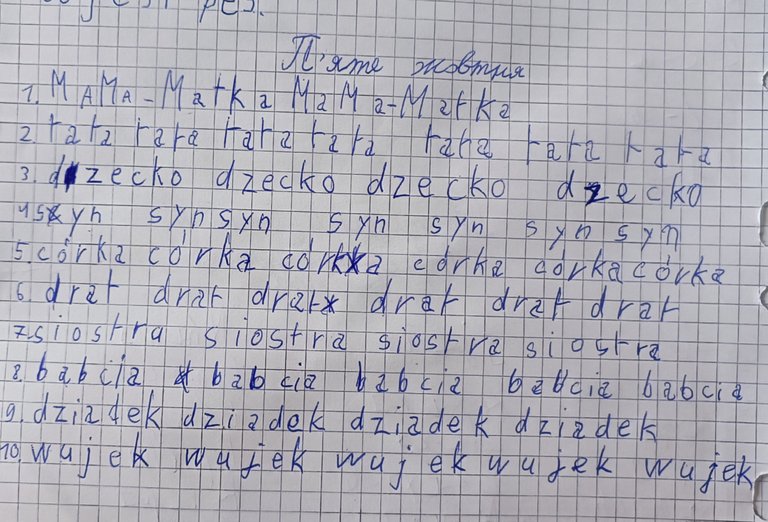 П'яте жовтня
1. MAMA - Matka MaMa - Matka
2. tata tata tata tata tata tata tata
3. dzecko dzecko dzecko dzecko
4. syn syn syn syn syn syn syn
5. córka córka córka córka córka córka
6. drat drat drat drat drat drat
7. siostra siostra siostra siostra
8. babcia babcia babcia babcia babcia
9. dziadek dziadek dziadek dziadek
10. wujek wujek wujek wujek wujek